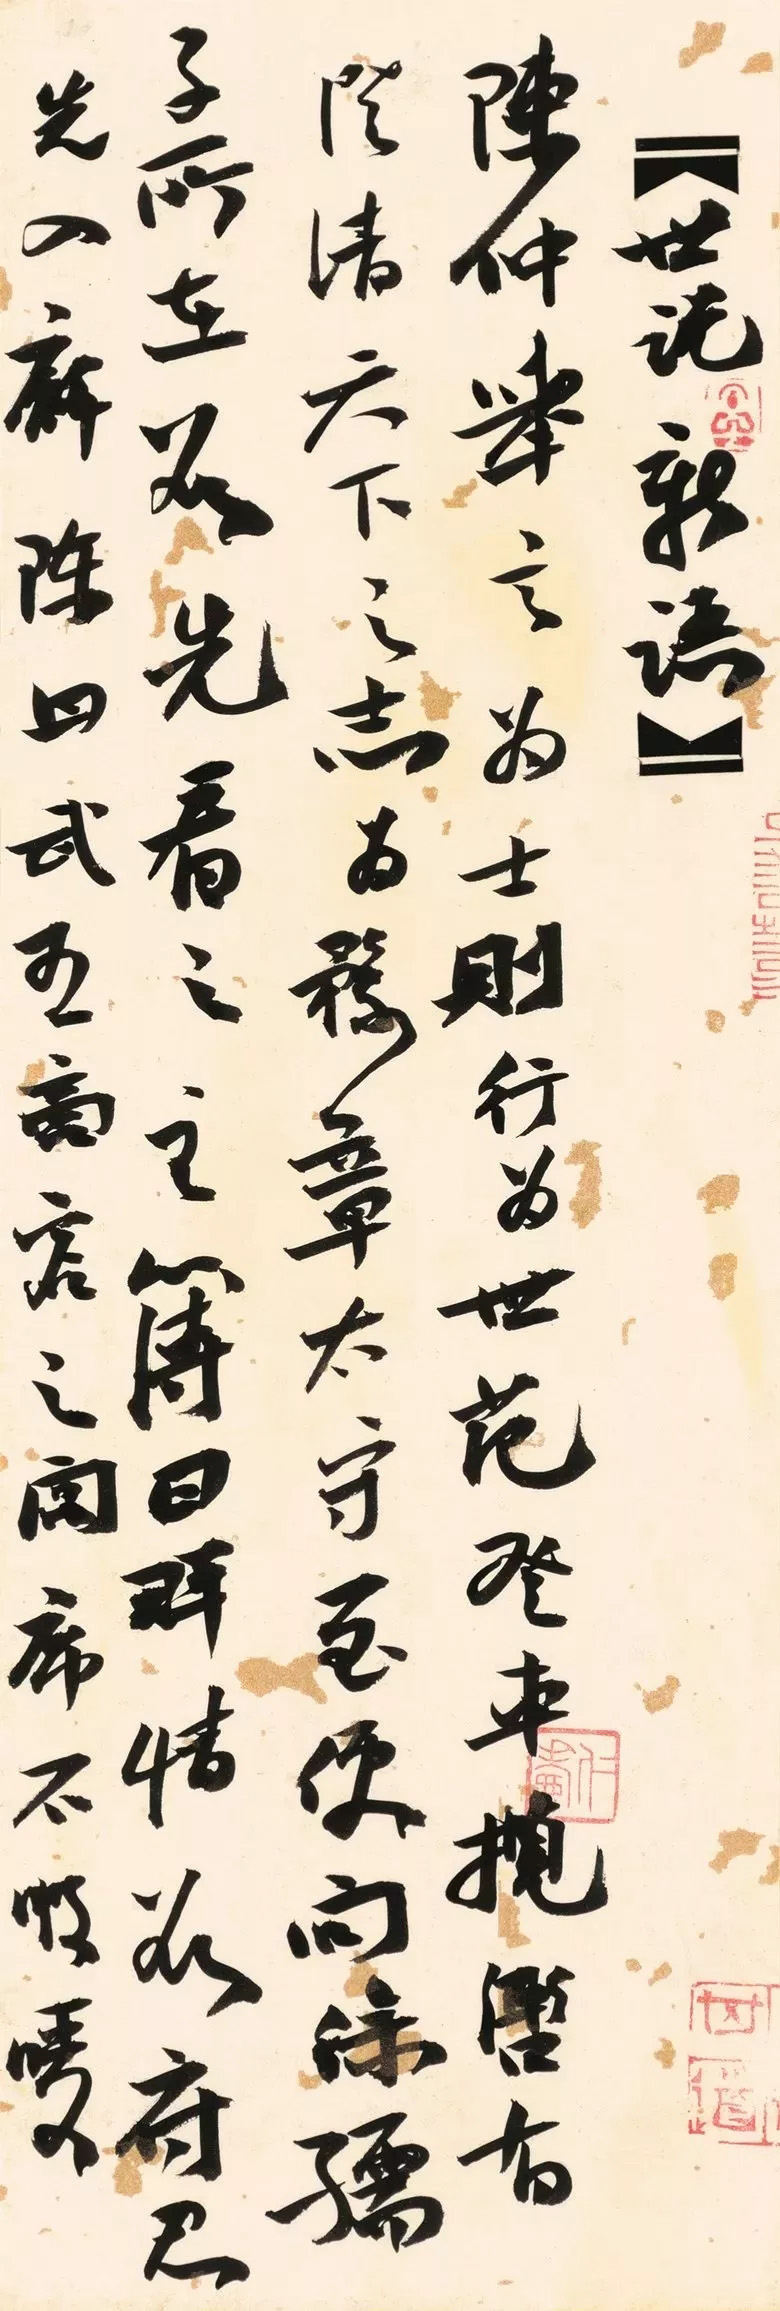 【世説新語】
陳仲舉言为士則行为世范登車攬轡有
澄清天下之志为豫章太守至便问徐孺
子所在欲先看之主簿曰群情欲府君
先入廨陳曰武王商容之閭席不暇暖